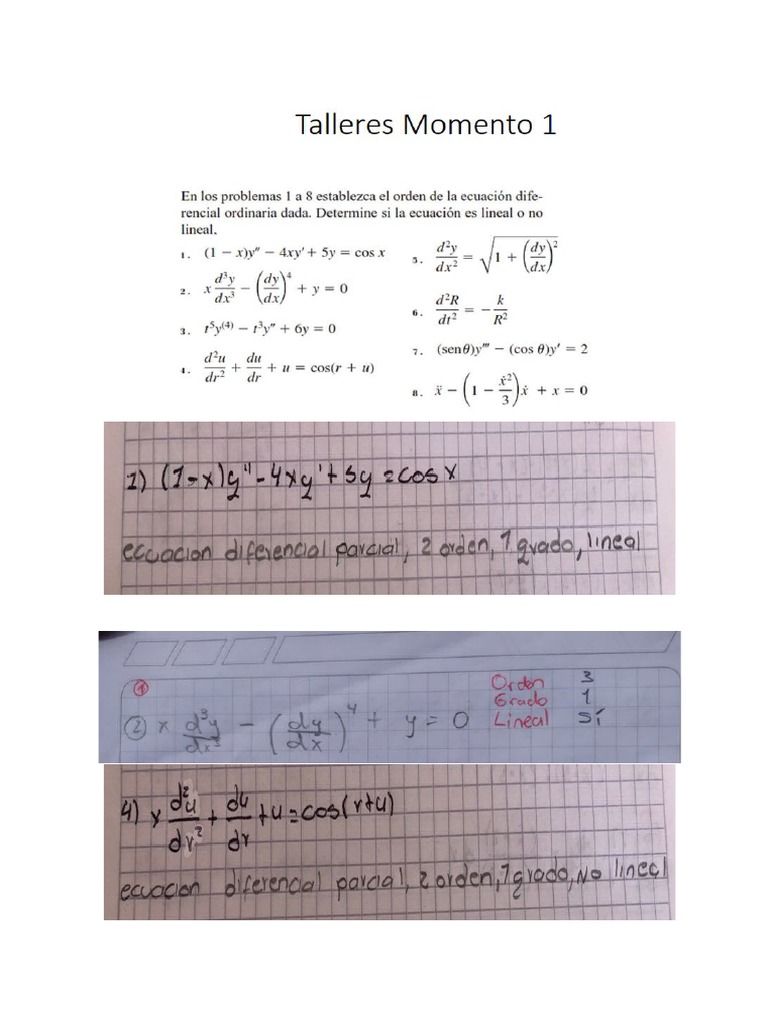 Talleres Momento 1
En los problemas 1 a 8 establezca el orden de la ecuación dife-
rencial ordinaria dada. Determine si la ecuación es lineal o no
lineal.
1. (1 − x)y″ − 4xy′ + 5y = cos x
2. x d³y/dx³ − (dy/dx)⁴ + y = 0
3. t⁵y⁽⁴⁾ − t³y″ + 6y = 0
4. d²u/dr² + du/dr + u = cos(r + u)
5. d²y/dx² = √(1 + (dy/dx)²)
6. d²R/dt² = − k/R²
7. (sen θ)y‴ − (cos θ)y′ = 2
8. ẍ − (1 − ẋ²/3)ẋ + x = 0
1) (1-x)y'' - 4xy' + 5y = cos x
ecuacion diferencial parcial, 2 orden, 1 grado, lineal
1
Orden 3
Grado 1
Lineal Sí
2 x d³y/dx³ − (dy/dx)⁴ + y = 0
4) x d²u/dr² + du/dr + u = cos(r+u)
ecuacion diferencial parcial, 2 orden, 1 grado, No lineal